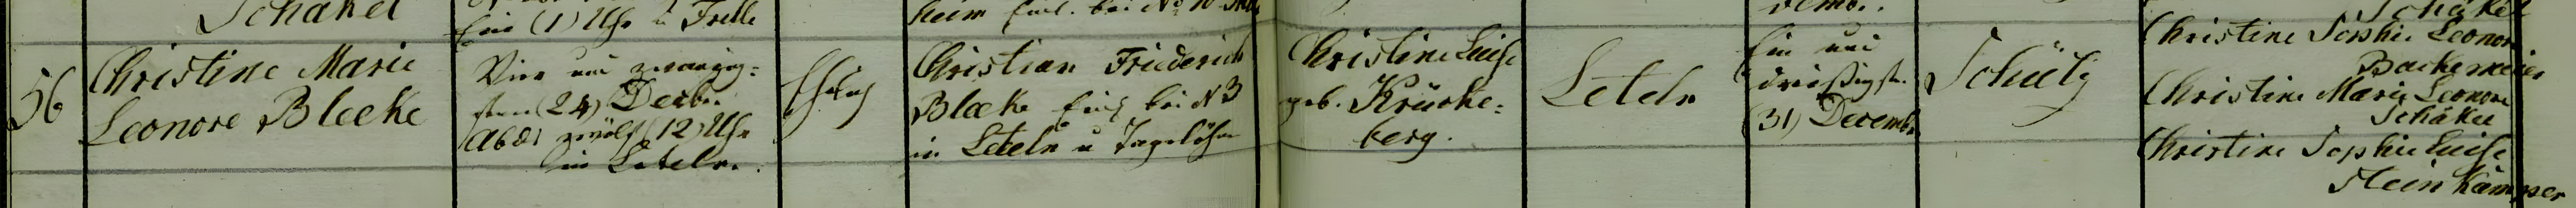 Schäkel
Ein (1) Uhr in Frille
heim Einl. bei No 10
Schäkel
56
Christine Marie
Leonore Bleeke
Vier und zwanzig=
sten (24) Decbr
Abds zwölf (12) Uhr
in Leteln.
Ehelich
Christian Friederich
Bleeke Einl. bei N 3
in Leteln u Tagelöhn
Christine Luise
geb. Krücke=
berg.
Leteln
Ein und
dreißigst.
(31) Decembr
Schütz
Christine Sophie Leonore
Backemeier
Christine Marie Leonore
Schäkel
Christine Sophie Luise
Steinkämper